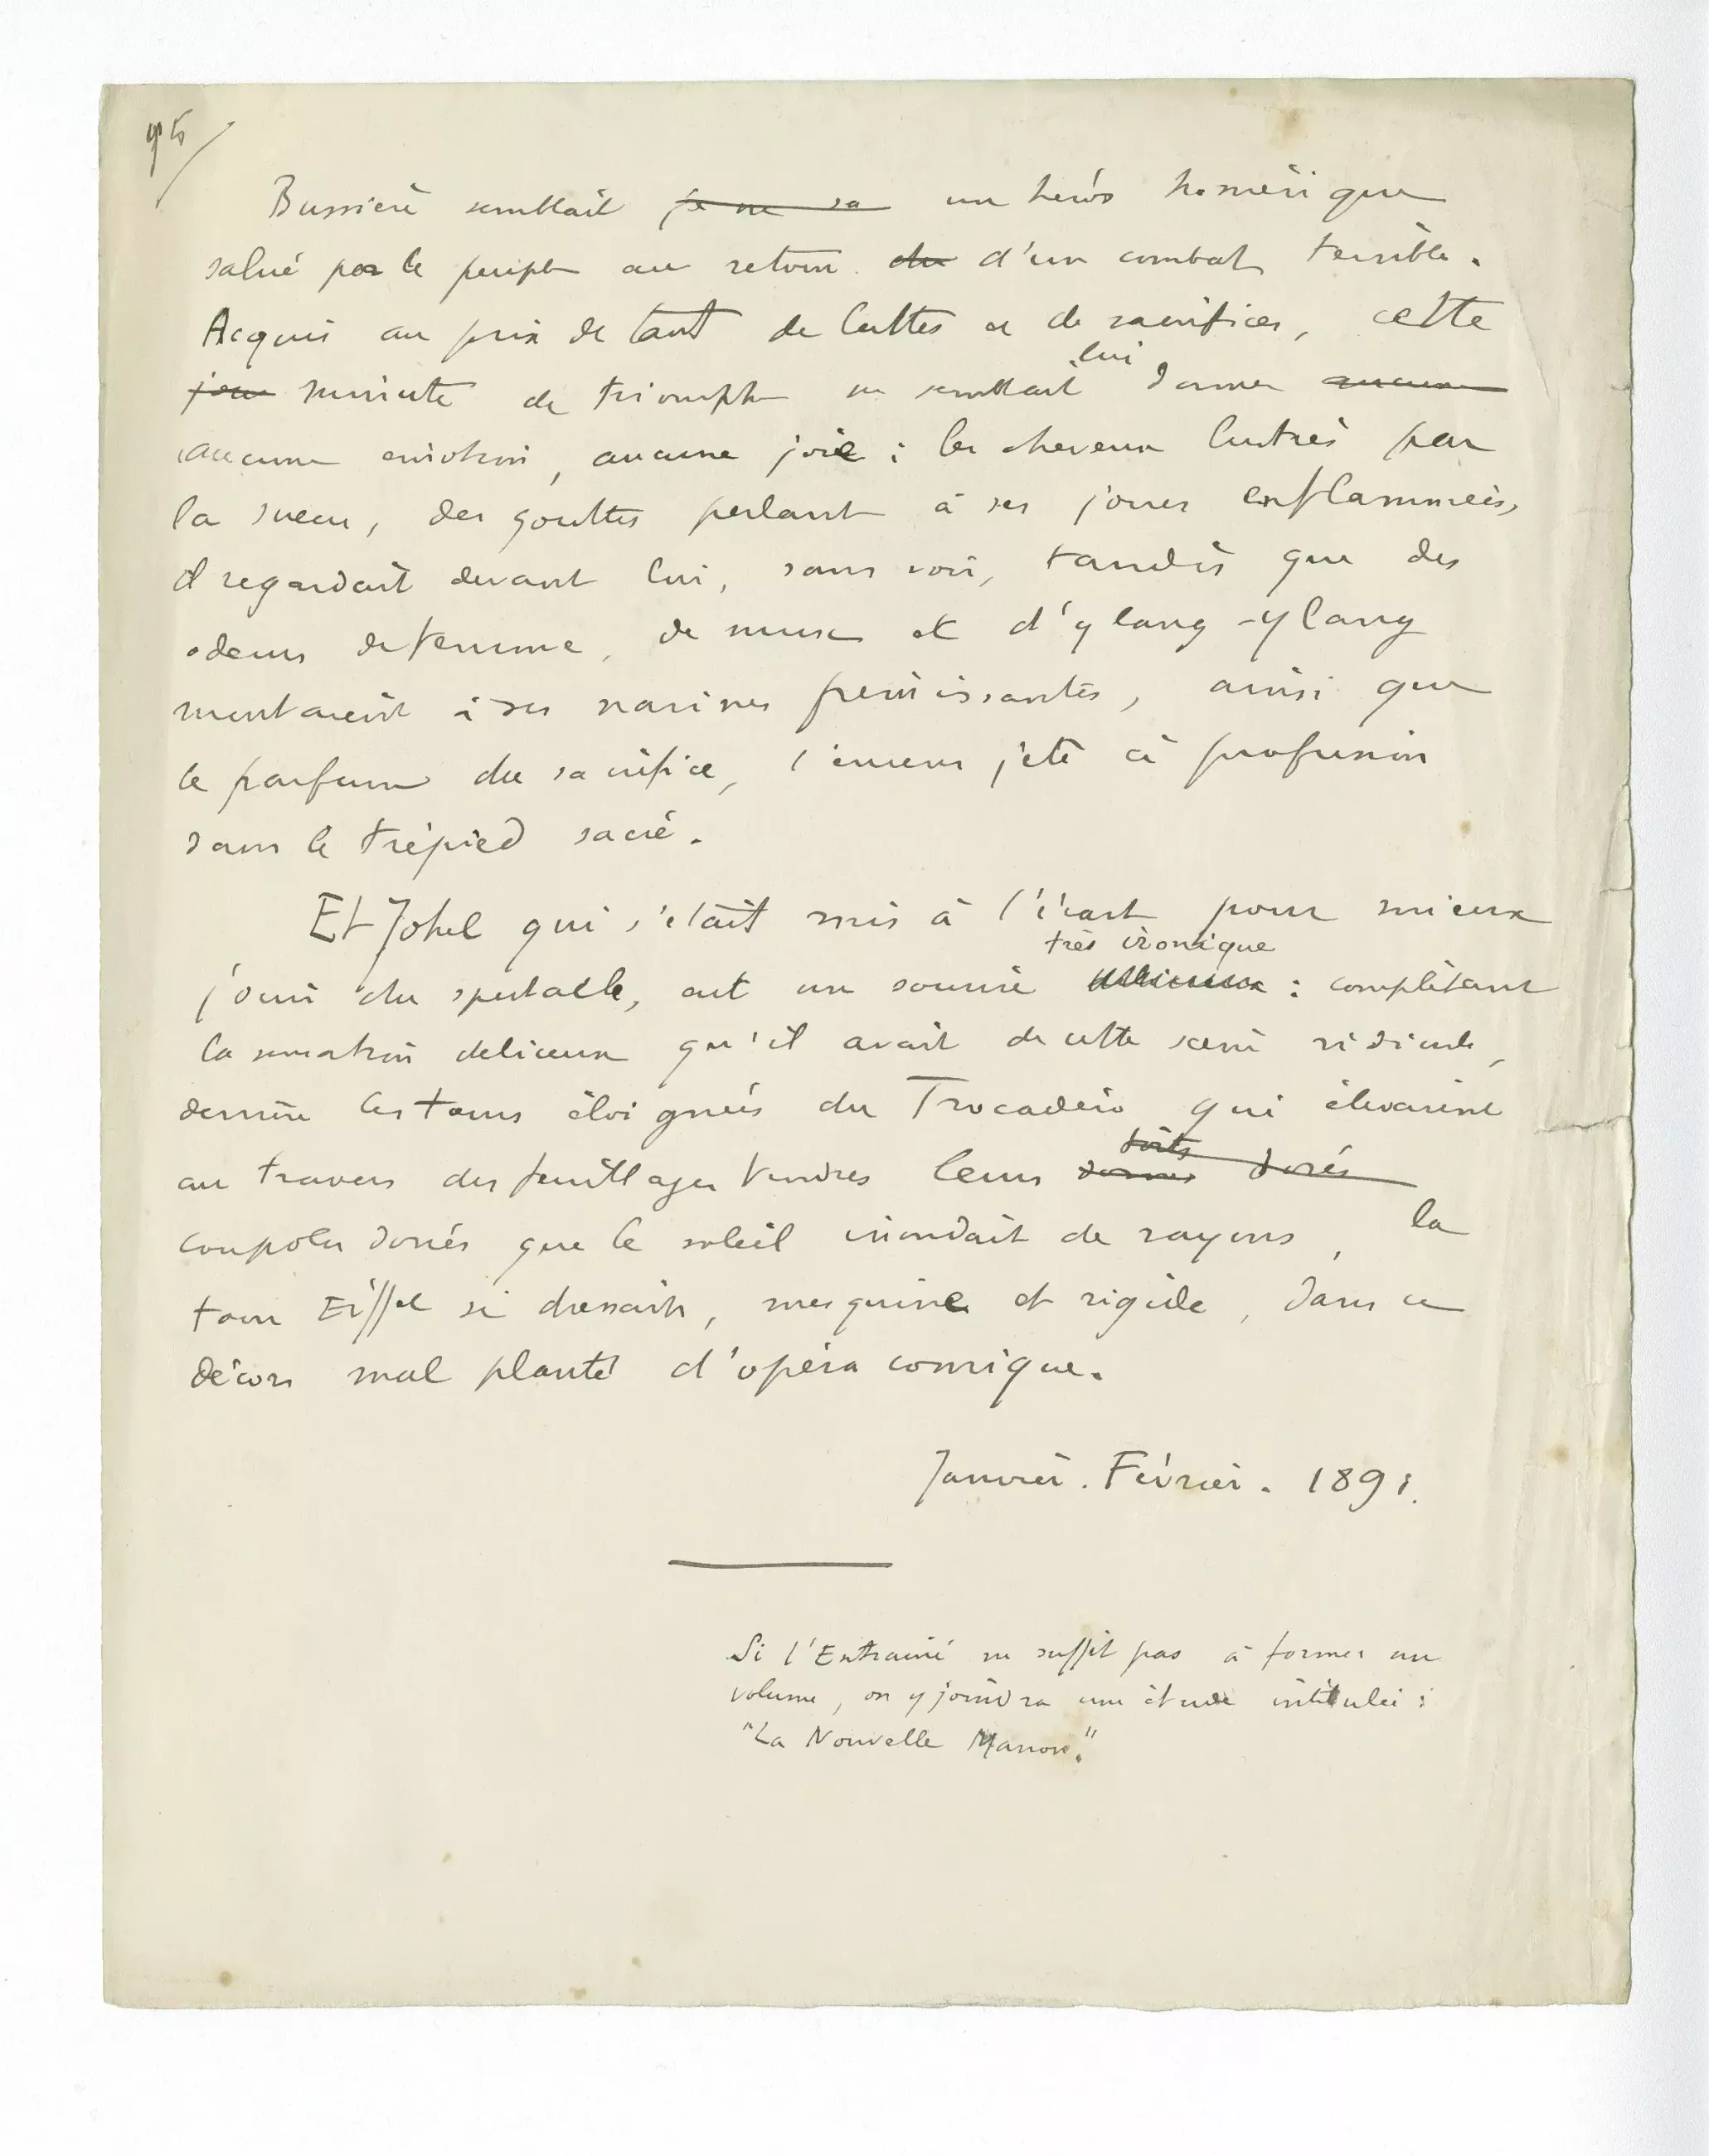 95
Bussière semblait je ne sa un héros homérique
salué par le peuple au retour du d'un combat terrible.
Acquis au prix de tant de luttes et de sacrifices, cette
minute de triomphe ne semblait lui donner aucune
aucune émotion, aucune joie ; les cheveux lustrés par
la sueur, des gouttes perlant à ses joues enflammées,
il regardait devant lui, sans voir, tandis que des
odeurs de femme, de musc et d'ylang-ylang
montaient à ses narines frémissantes, ainsi que
le parfum du sacrifice, l'encens jeté à profusion
dans le trépied sacré.
Et Johel qui s'était mis à l'écart pour mieux
très ironique
jouir du spectacle, eut un sourire : complétant
la sensation délicieuse qu'il avait de cette scène ridicule,
derrière les tours éloignées du Trocadéro qui élevaient
toits
au travers des feuillages tendres leurs dorés
coupoles dorées que le soleil inondait de rayons, la
tour Eiffel se dressait, mesquine et rigide, dans ce
décors mal planté d'opéra comique.
Janvier. Février. 1891.
Si l'Entrainé ne suffit pas à former un
volume, on y joindra une étude intitulée :
"La Nouvelle Manon."